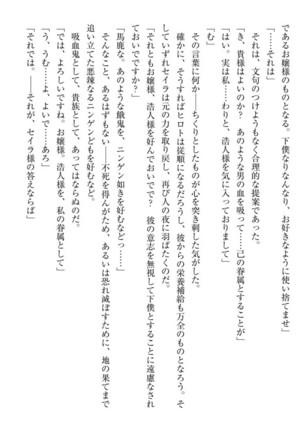 であるお嬢様のものとなる。下僕なりなんなり、お好きなように使い捨て
「……それは」
それは、文句のつけようもなく合理的な提案であった。
「き、貴様はよいのか？　あのような男の血を吸って……己の眷属とすることが」
「はい。実は私……わりと、浩人様を気に入っておりまして」
「む」
その言葉に何か――ちくりとしたものが心を突き刺した気がした。
確かに、そうすればヒロトは従順になるだろうし、彼からの栄養補給も万全のものとなろう。そ
していずれセイラは元の力を取り戻し、再び人の夜に羽ばたくのだ。
「それともお嬢様、浩人様を好んでおいでで？　彼の意志を無視して下僕とすることに遠慮なされ
ておいでですか？」
「馬鹿な、あのような餓鬼を、ニンゲン如きを好むなどっ…」
そんなこと、あるはずもない――不死を得んがため、あるいは恐れ滅ぼすために、地の果てまで
追い立てた悪辣なるニンゲンどもを好むなど。
吸血鬼として、貴族として、あってはならぬのだ。
「では、よろしいですね。お嬢様。浩人様を、私の眷属として」
「う、うむ……よ、よいで……あろ」
「それでは。――それが、セイラ様の答えならば」